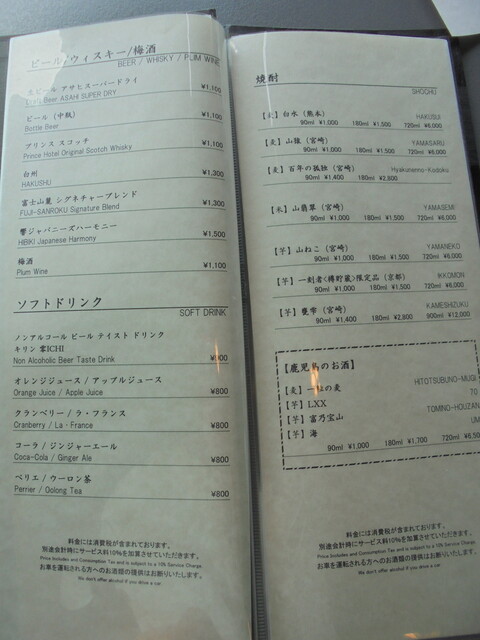 ビール/ウィスキー/梅酒
BEER / WHISKY / PLUM WINE
生ビール アサヒスーパードライ
Draft Beer ASAHI SUPER DRY ¥1,100
ビール (中瓶)
Bottle Beer ¥1,100
プリンス スコッチ
Prince Hotel Original Scotch Whisky ¥1,100
白州
HAKUSHU ¥1,300
富士山麓 シグネチャーブレンド
FUJI-SANROKU Signature Blend ¥1,300
響ジャパニーズハーモニー
HIBIKI Japanese Harmony ¥1,500
梅酒
Plum Wine ¥1,100
ソフトドリンク
SOFT DRINK
ノンアルコール ビール テイスト ドリンク
キリン 零ICHI
Non Alcoholic Beer Taste Drink
オレンジジュース / アップルジュース
Orange Juice / Apple Juice ¥800
クランベリー / ラ・フランス
Cranberry / La・France ¥800
コーラ / ジンジャーエール
Coca-Cola / Ginger Ale ¥800
ペリエ / ウーロン茶
Perrier / Oolong Tea ¥800
料金には消費税が含まれております。
別途会計時にサービス料10%を加算させていただきます。
Price Includes and Consumption Tax and is subject to a 10% Service Charge.
お車を運転される方へのお酒類の提供はお断りいたします。
We don't offer alcohol if you drive a car.
焼酎
SHOCHU
【麦】白水 (熊本) HAKUSUI
90ml ¥1,000 180ml ¥1,500 720ml ¥6,000
【麦】山猿 (宮崎) YAMASARU
90ml ¥1,000 180ml ¥1,500 720ml ¥6,000
【麦】百年の孤独 (宮崎) Hyakunenno-Kodoku
90ml ¥1,400 180ml ¥2,800
【米】山翡翠 (宮崎) YAMASEMI
90ml ¥1,000 180ml ¥1,500 720ml ¥6,000
【芋】山ねこ (宮崎) YAMANEKO
90ml ¥1,000 180ml ¥1,500 720ml ¥6,000
【芋】一刻者<樽貯蔵>限定品 (京都) IKKOMON
90ml ¥1,000 180ml ¥1,500 720ml ¥6,000
【芋】甕雫 (宮崎) KAMESHIZUKU
90ml ¥1,400 180ml ¥2,800 900ml ¥12,000
【鹿児島のお酒】
【麦】一粒の麦 HITOTSUBUNO-MUGI
【芋】LXX 70
【芋】富乃宝山 TOMINO-HOUZAN
【芋】海 UMI
90ml ¥1,000 180ml ¥1,700 720ml ¥6,500